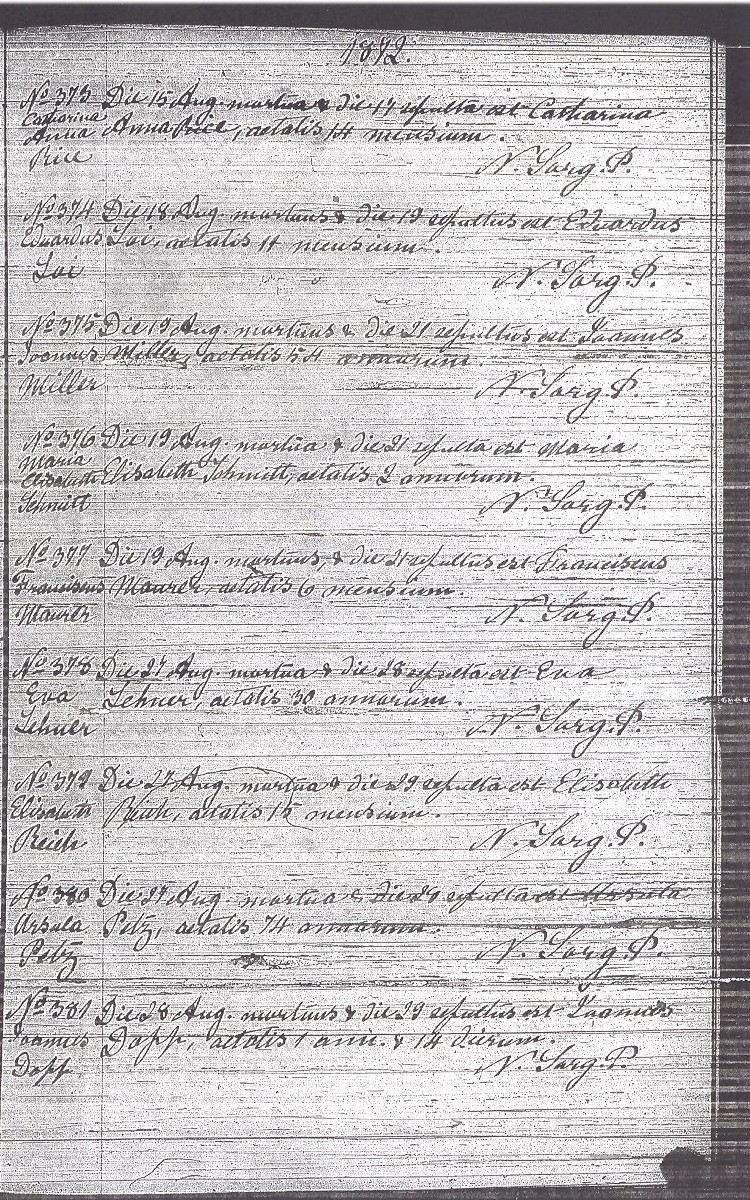 1872.
No 373 Die 15 Aug. mortua & die 17 sepulta est Catharina
Catharina
Anna Anna Rice, aetatis 14 mensium.
Rice
N. Sorg. P.
No 374 Die 18 Aug. mortuus & die 19 sepultus est Eduardus
Eduardus Loi, aetatis 11 mensium.
Loi
N. Sorg. P.
No 375 Die 19 Aug. mortuus & die 21 sepultus est Joannes
Joannes Miller, aetatis 54 annorum.
Miller
N. Sorg. P.
No 376 Die 19 Aug. mortua & die 21 sepulta est Maria
Maria
Elisabeth Elisabeth Schmitt, aetatis 2 annorum.
Schmitt
N. Sorg. P.
No 377 Die 19 Aug. mortuus, & die 21 sepultus est Franciscus
Franciscus Maurer, aetatis 6 mensium.
Maurer
N. Sorg. P.
No 378 Die 27 Aug. mortua & die 28 sepulta est Eva
Eva Lehner, aetatis 30 annorum.
Lehner
N. Sorg. P.
No 379 Die 27 Aug. mortua & die 29 sepulta est Elisabeth
Elisabeth Reich, aetatis 15 mensium.
Reich
N. Sorg. P.
No 380 Die 27 Aug. mortua & die 29 sepulta est Ursula
Ursula Petz, aetatis 74 annorum.
Petz
N. Sorg. P.
No 381 Die 28 Aug. mortuus & die 29 sepultus est Joannes
Joannes Dapp, aetatis 1 anni. & 14 dierum.
Dapp
N. Sorg. P.